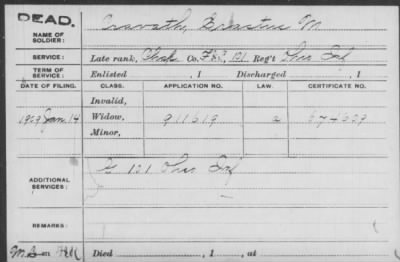 DEAD.
NAME OF SOLDIER: Cravath, Erastus M
SERVICE: Late rank, Chap Co. F&S, 101 Reg't Ohio Inf
TERM OF SERVICE: Enlisted , 1 Discharged , 1
DATE OF FILING. CLASS. APPLICATION NO. LAW. CERTIFICATE NO.
Invalid,
1909 Jan. 14 Widow, 911619
Minor,
ADDITIONAL SERVICES: 101 Ohio Inf
REMARKS:
Died , 1 , at